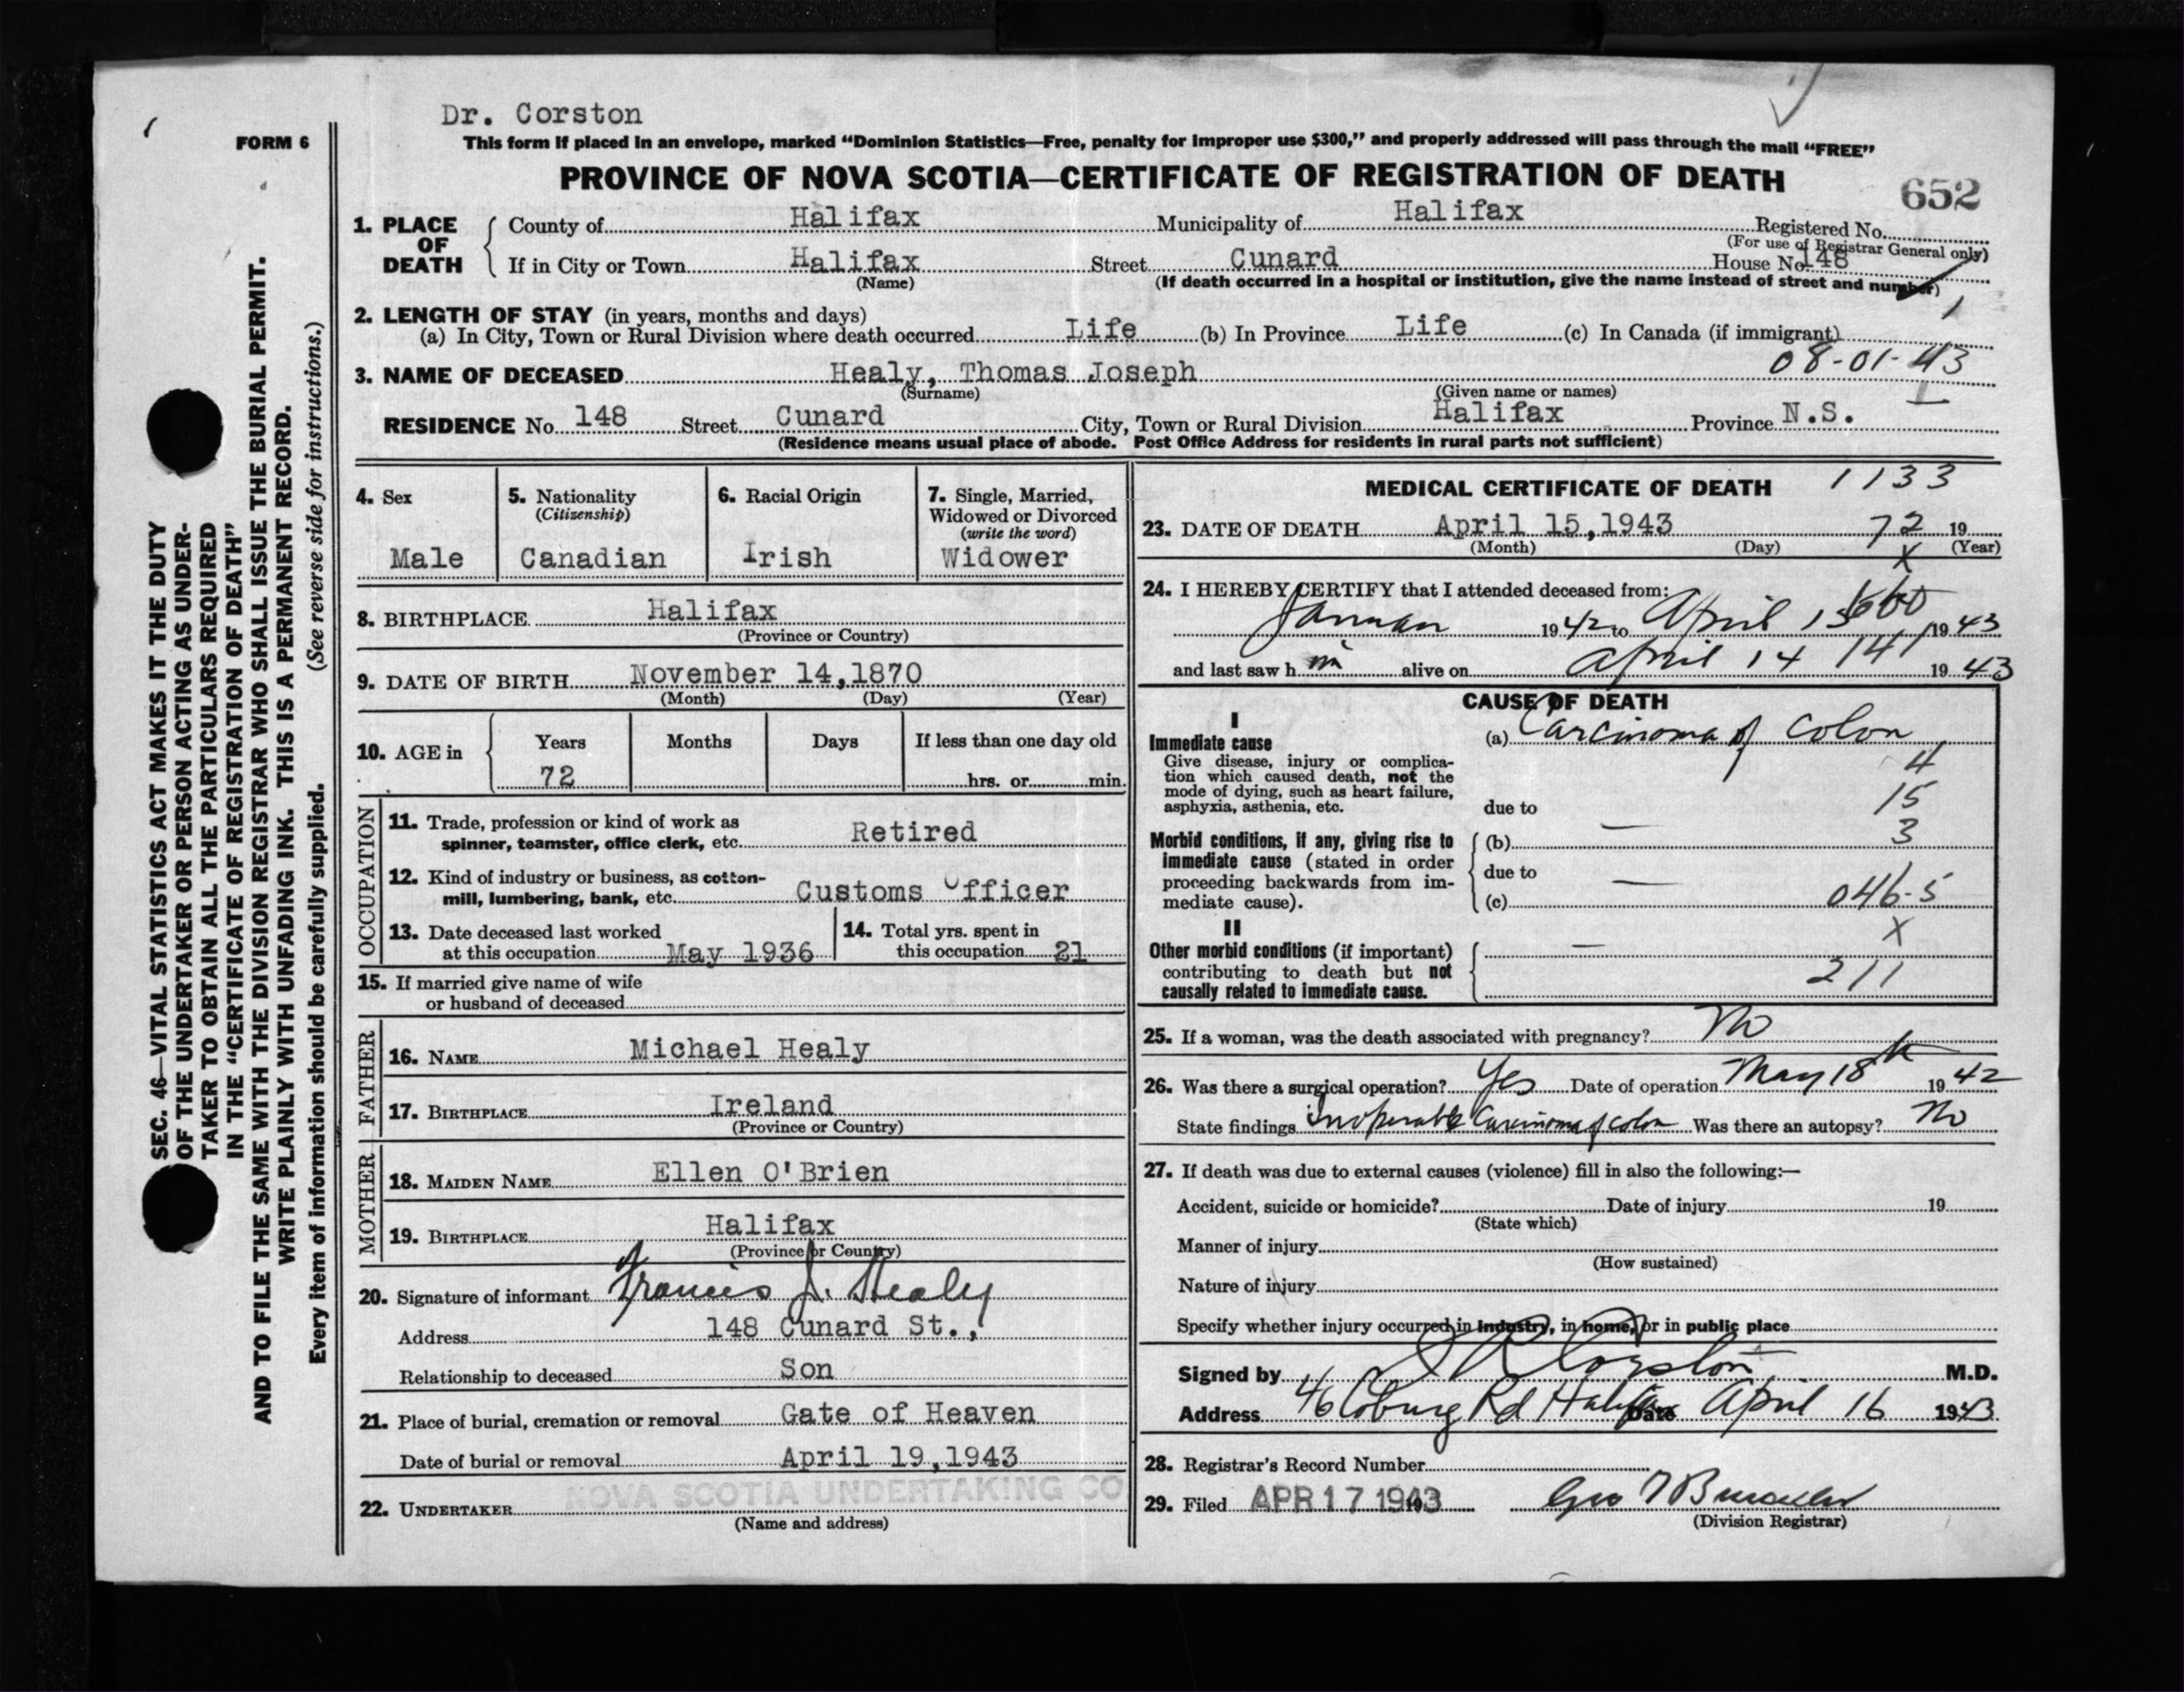 Dr. Corston
FORM 6
This form if placed in an envelope, marked “Dominion Statistics—Free, penalty for improper use $300,” and properly addressed will pass through the mail “FREE”
PROVINCE OF NOVA SCOTIA—CERTIFICATE OF REGISTRATION OF DEATH
652
1. PLACE OF DEATH
County of Halifax Municipality of Halifax Registered No.
(For use of Registrar General only)
If in City or Town Halifax Street Cunard House No. 148
(Name) (If death occurred in a hospital or institution, give the name instead of street and number)
2. LENGTH OF STAY (in years, months and days)
(a) In City, Town or Rural Division where death occurred Life (b) In Province Life (c) In Canada (if immigrant)
08-01-43
3. NAME OF DECEASED Healy, Thomas Joseph
(Surname) (Given name or names)
RESIDENCE No. 148 Street Cunard City, Town or Rural Division Halifax Province N.S.
(Residence means usual place of abode. Post Office Address for residents in rural parts not sufficient)
4. Sex
Male
5. Nationality
(Citizenship)
Canadian
6. Racial Origin
Irish
7. Single, Married,
Widowed or Divorced
(write the word)
Widower
8. BIRTHPLACE Halifax
(Province or Country)
9. DATE OF BIRTH November 14,1870
(Month) (Day) (Year)
10. AGE in
Years Months Days If less than one day old
72 hrs. or min.
OCCUPATION
11. Trade, profession or kind of work as
spinner, teamster, office clerk, etc. Retired
12. Kind of industry or business, as cotton-
mill, lumbering, bank, etc. Customs Officer
13. Date deceased last worked
at this occupation May 1936
14. Total yrs. spent in
this occupation 21
15. If married give name of wife
or husband of deceased
FATHER
16. NAME Michael Healy
17. BIRTHPLACE Ireland
(Province or Country)
MOTHER
18. MAIDEN NAME Ellen O'Brien
19. BIRTHPLACE Halifax
(Province or Country)
20. Signature of informant Francis J. Healy
Address 148 Cunard St.,
Relationship to deceased Son
21. Place of burial, cremation or removal Gate of Heaven
Date of burial or removal April 19,1943
22. UNDERTAKER NOVA SCOTIA UNDERTAKING CO
(Name and address)
MEDICAL CERTIFICATE OF DEATH 1133
23. DATE OF DEATH April 15,1943 72 19
(Month) (Day) X (Year)
24. I HEREBY CERTIFY that I attended deceased from:
1942 to April 15 1943
and last saw him alive on April 14 141 1943
CAUSE OF DEATH
I
Immediate cause
Give disease, injury or complica-
tion which caused death, not the
mode of dying, such as heart failure,
asphyxia, asthenia, etc.
(a) Carcinoma of Colon
4
15
due to
3
Morbid conditions, if any, giving rise to
immediate cause (stated in order
proceeding backwards from im-
mediate cause).
(b) —
due to
(c) —
046-5
X
II
Other morbid conditions (if important)
contributing to death but not
causally related to immediate cause.
—
211
25. If a woman, was the death associated with pregnancy? No
26. Was there a surgical operation? Yes Date of operation May 18th 1942
State findings Inoperable Carcinoma of colon Was there an autopsy? No
27. If death was due to external causes (violence) fill in also the following:—
Accident, suicide or homicide? Date of injury 19
(State which)
Manner of injury
(How sustained)
Nature of injury
Specify whether injury occurred in industry, in home, or in public place
Signed by Corston M.D.
Address 46 Coburg Rd Halifax Date April 16 1943
28. Registrar's Record Number
29. Filed APR 17 1943 Geo
(Division Registrar)
SEC. 46—VITAL STATISTICS ACT MAKES IT THE DUTY
OF THE UNDERTAKER OR PERSON ACTING AS UNDER-
TAKER TO OBTAIN ALL THE PARTICULARS REQUIRED
IN THE “CERTIFICATE OF REGISTRATION OF DEATH”
AND TO FILE THE SAME WITH THE DIVISION REGISTRAR WHO SHALL ISSUE THE BURIAL PERMIT.
WRITE PLAINLY WITH UNFADING INK. THIS IS A PERMANENT RECORD.
Every item of information should be carefully supplied. (See reverse side for instructions.)